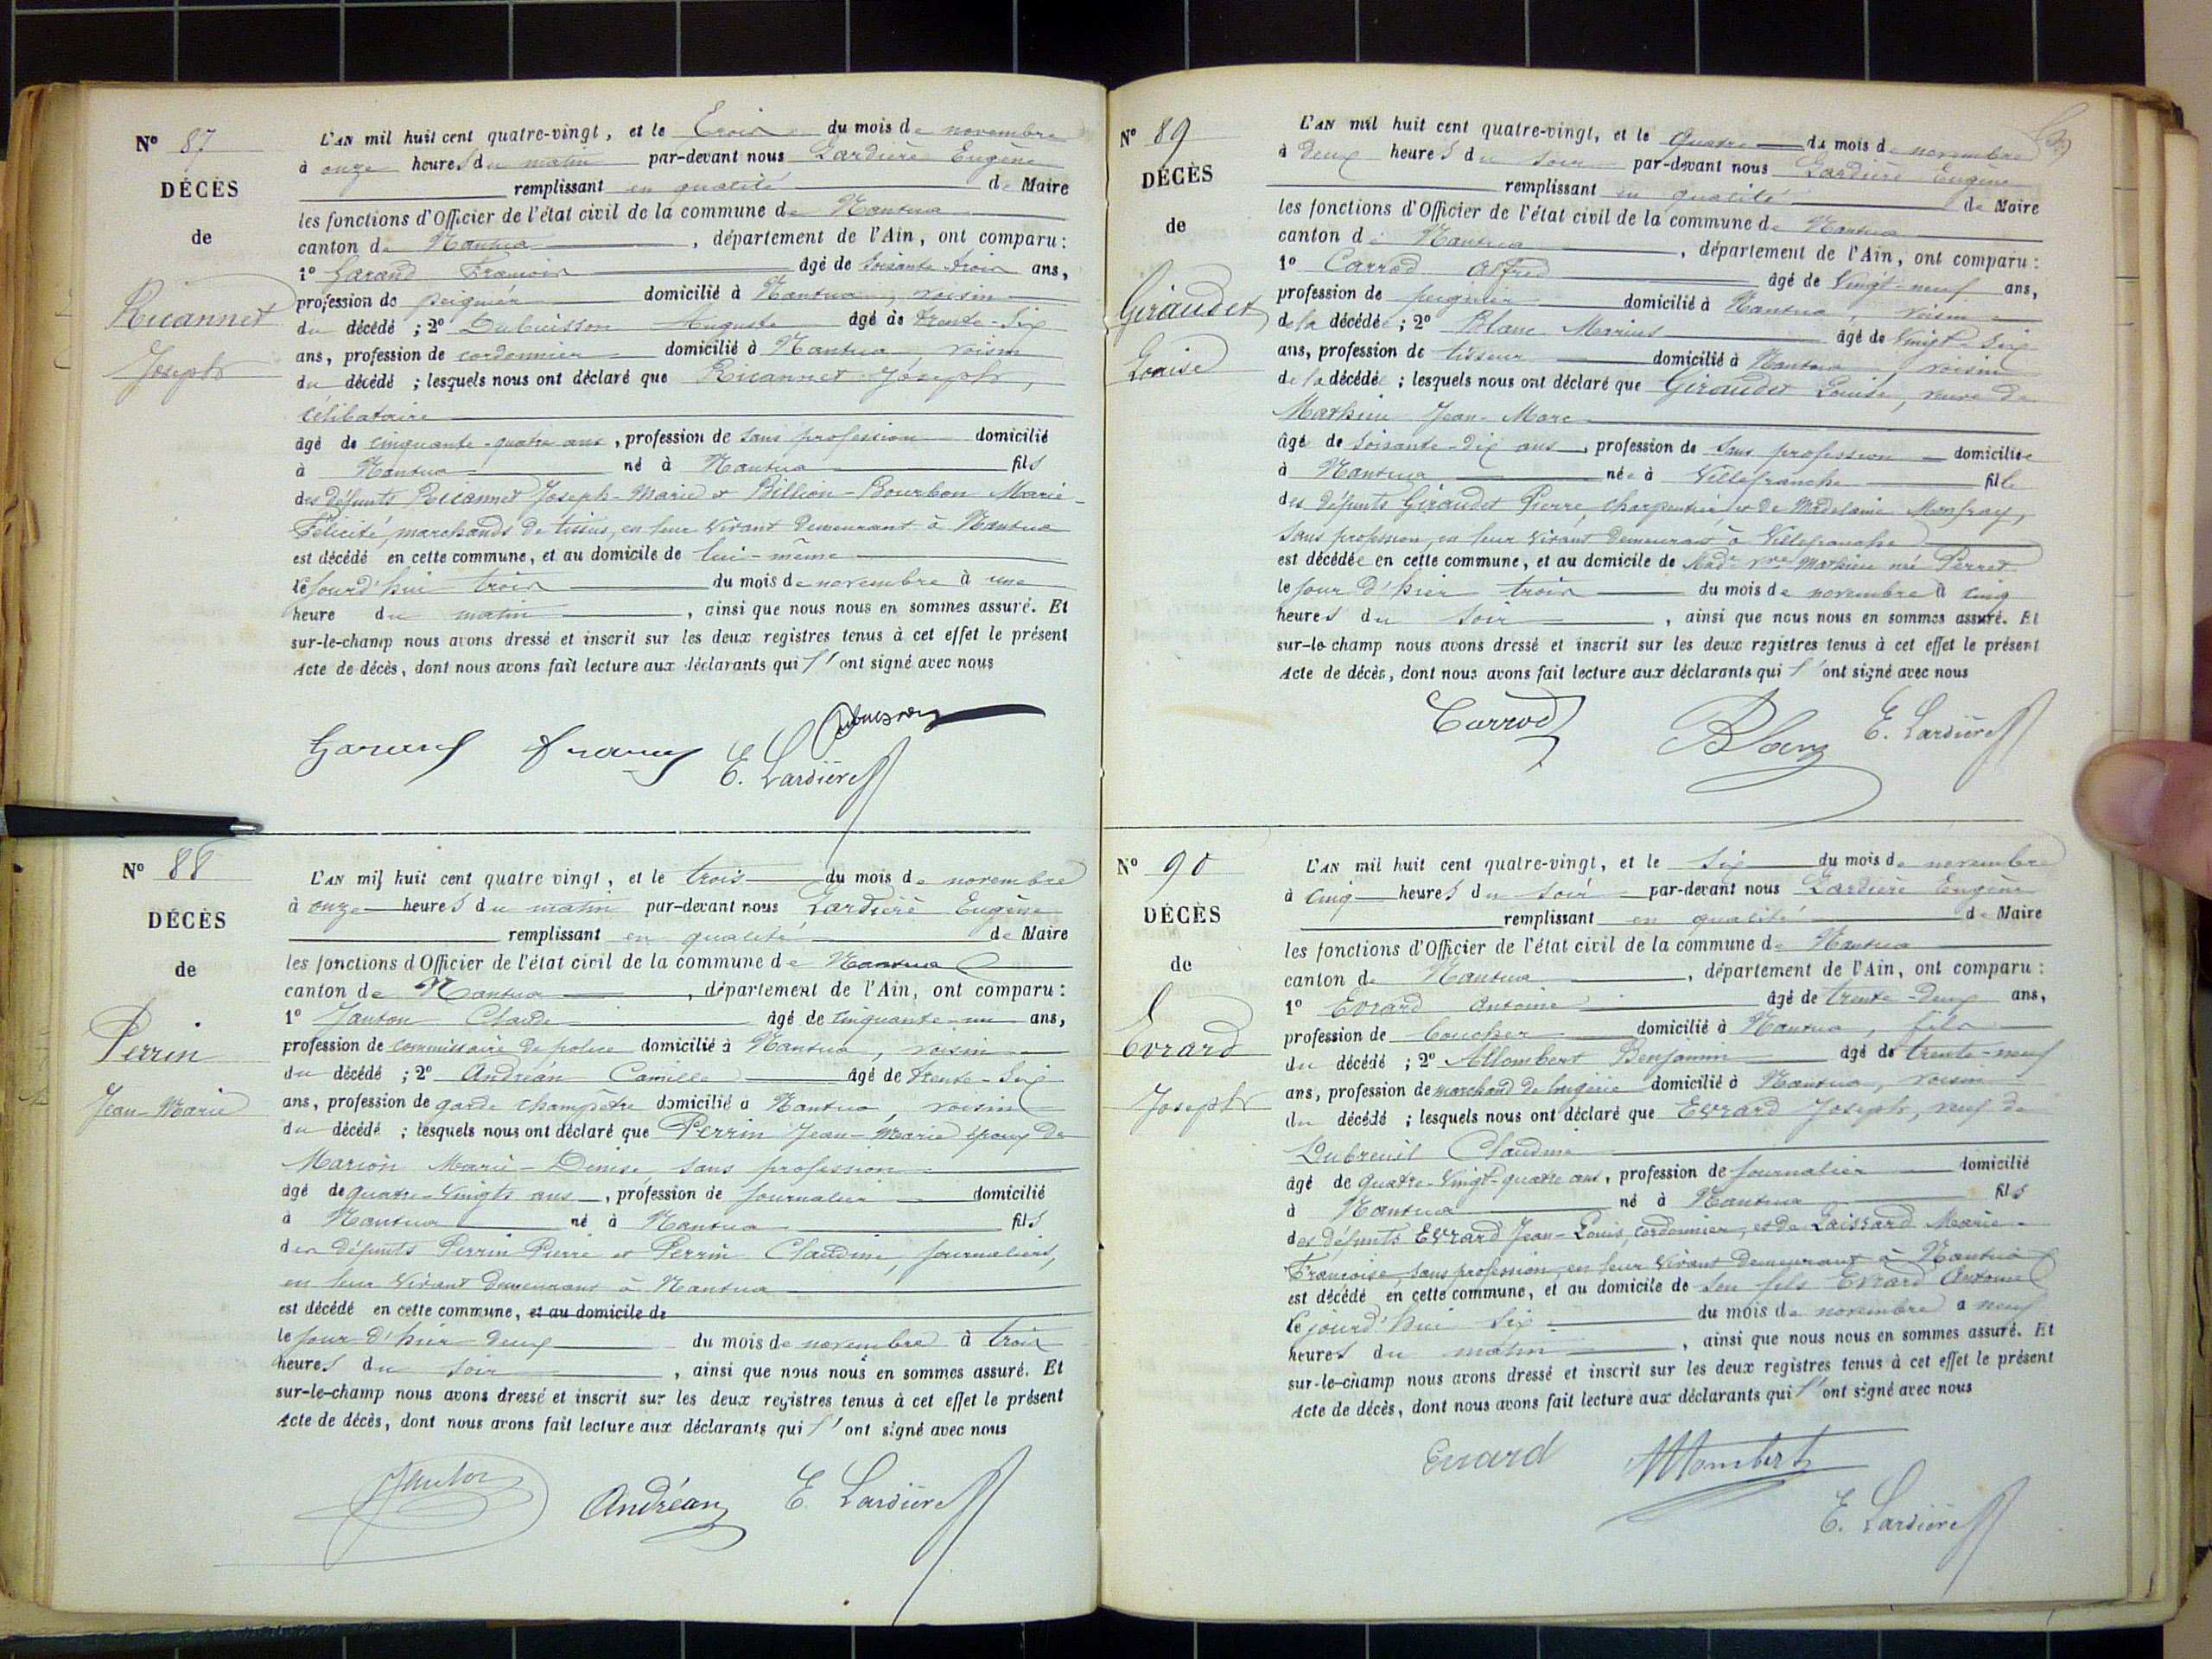 N° 87
DÉCÈS
de
Ricannet
Joseph
L'AN mil huit cent quatre-vingt, et le Trois du mois de novembre
à onze heures du matin par-devant nous Lardière Eugène
remplissant en qualité de Maire
les fonctions d'Officier de l'état civil de la commune de Nantua
canton de Nantua, département de l'Ain, ont comparu :
1° Garand François âgé de soixante trois ans,
profession de peignier domicilié à Nantua, voisin
du décédé ; 2° Dubuisson Auguste âgé de trente-six
ans, profession de cordonnier domicilié à Nantua, voisin
du décédé ; lesquels nous ont déclaré que Ricannet Joseph,
célibataire
âgé de cinquante-quatre ans, profession de sans profession domicilié
à Nantua né à Nantua fils
des défunts Ricannet Joseph-Marie et Billion-Bourbon Marie-
Félicité, marchands de tissus, en leur vivant demeurant à Nantua
est décédé en cette commune, et au domicile de lui-même
le jourd'hui trois du mois de novembre à une
heure du matin, ainsi que nous nous en sommes assuré. Et
sur-le-champ nous avons dressé et inscrit sur les deux registres tenus à cet effet le présent
Acte de décès, dont nous avons fait lecture aux déclarants qui l'ont signé avec nous
Dubuisson
Garand E. Lardière
N° 88
DÉCÈS
de
Perrin
Jean-Marie
L'AN mil huit cent quatre vingt, et le trois du mois de novembre
à onze heures du matin par-devant nous Lardière Eugène
remplissant en qualité de Maire
les fonctions d'Officier de l'état civil de la commune de Nantua
canton de Nantua, département de l'Ain, ont comparu :
1° Janton Claude âgé de cinquante-un ans,
profession de commissaire de police domicilié à Nantua, voisin
du décédé ; 2° Andréan Camille âgé de trente-six
ans, profession de garde champêtre domicilié à Nantua, voisin
du décédé ; lesquels nous ont déclaré que Perrin Jean-Marie époux de
Marion Marie-Denise, sans profession
âgé de quatre-vingts ans, profession de journalier domicilié
à Nantua né à Nantua fils
des défunts Perrin Pierre et Perrin Claudine, journaliers,
en leur vivant demeurant à Nantua
est décédé en cette commune, et au domicile de
le jour d'hier deux du mois de novembre à trois
heures du soir, ainsi que nous nous en sommes assuré. Et
sur-le-champ nous avons dressé et inscrit sur les deux registres tenus à cet effet le présent
Acte de décès, dont nous avons fait lecture aux déclarants qui l'ont signé avec nous
Janton Andréan E. Lardière
N° 89
DÉCÈS
de
Giraudet
Louise
L'AN mil huit cent quatre-vingt, et le Quatre du mois de novembre
à deux heures du soir par-devant nous Lardière Eugène
remplissant en qualité de Maire
les fonctions d'Officier de l'état civil de la commune de Nantua
canton de Nantua, département de l'Ain, ont comparu :
1° Carrod Alfred âgé de vingt-neuf ans,
profession de peignier domicilié à Nantua, voisin
de la décédée ; 2° Blanc Marius âgé de vingt-six
ans, profession de tisseur domicilié à Nantua, voisin
de la décédée ; lesquels nous ont déclaré que Giraudet Louise, veuve de
Mathieu Jean-Marc
âgé de soixante-dix ans, profession de sans profession domiciliée
à Nantua née à Villefranche fille
des défunts Giraudet Pierre, charpentier et de Madelaine Monfray,
sans profession, en leur vivant demeurant à Villefranche
est décédée en cette commune, et au domicile de Made Vve Mathieu née Perret
le jour d'hier trois du mois de novembre à cinq
heures du soir, ainsi que nous nous en sommes assuré. Et
sur-le-champ nous avons dressé et inscrit sur les deux registres tenus à cet effet le présent
Acte de décès, dont nous avons fait lecture aux déclarants qui l'ont signé avec nous
Carrod Blanc E. Lardière
N° 90
DÉCÈS
de
Evrard
Joseph
L'AN mil huit cent quatre-vingt, et le six du mois de novembre
à cinq heures du soir par-devant nous Lardière Eugène
remplissant en qualité de Maire
les fonctions d'Officier de l'état civil de la commune de Nantua
canton de Nantua, département de l'Ain, ont comparu :
1° Evrard Antoine âgé de trente-deux ans,
profession de boucher domicilié à Nantua, fils
du décédé ; 2° Allombert Benjamin âgé de trente-neuf
ans, profession de marchand de lingerie domicilié à Nantua, voisin
du décédé ; lesquels nous ont déclaré que Evrard Joseph, veuf de
Dubreuil Claudine
âgé de quatre-vingt-quatre ans, profession de journalier domicilié
à Nantua né à Nantua fils
des défunts Evrard Jean-Louis, cordonnier, et de Laissard Marie-
Françoise, sans profession, en leur vivant demeurant à Nantua
est décédé en cette commune, et au domicile de son fils Evrard Antoine
le jourd'hui six du mois de novembre à neuf
heures du matin, ainsi que nous nous en sommes assuré. Et
sur-le-champ nous avons dressé et inscrit sur les deux registres tenus à cet effet le présent
Acte de décès, dont nous avons fait lecture aux déclarants qui l'ont signé avec nous
Evrard Allombert
E. Lardière